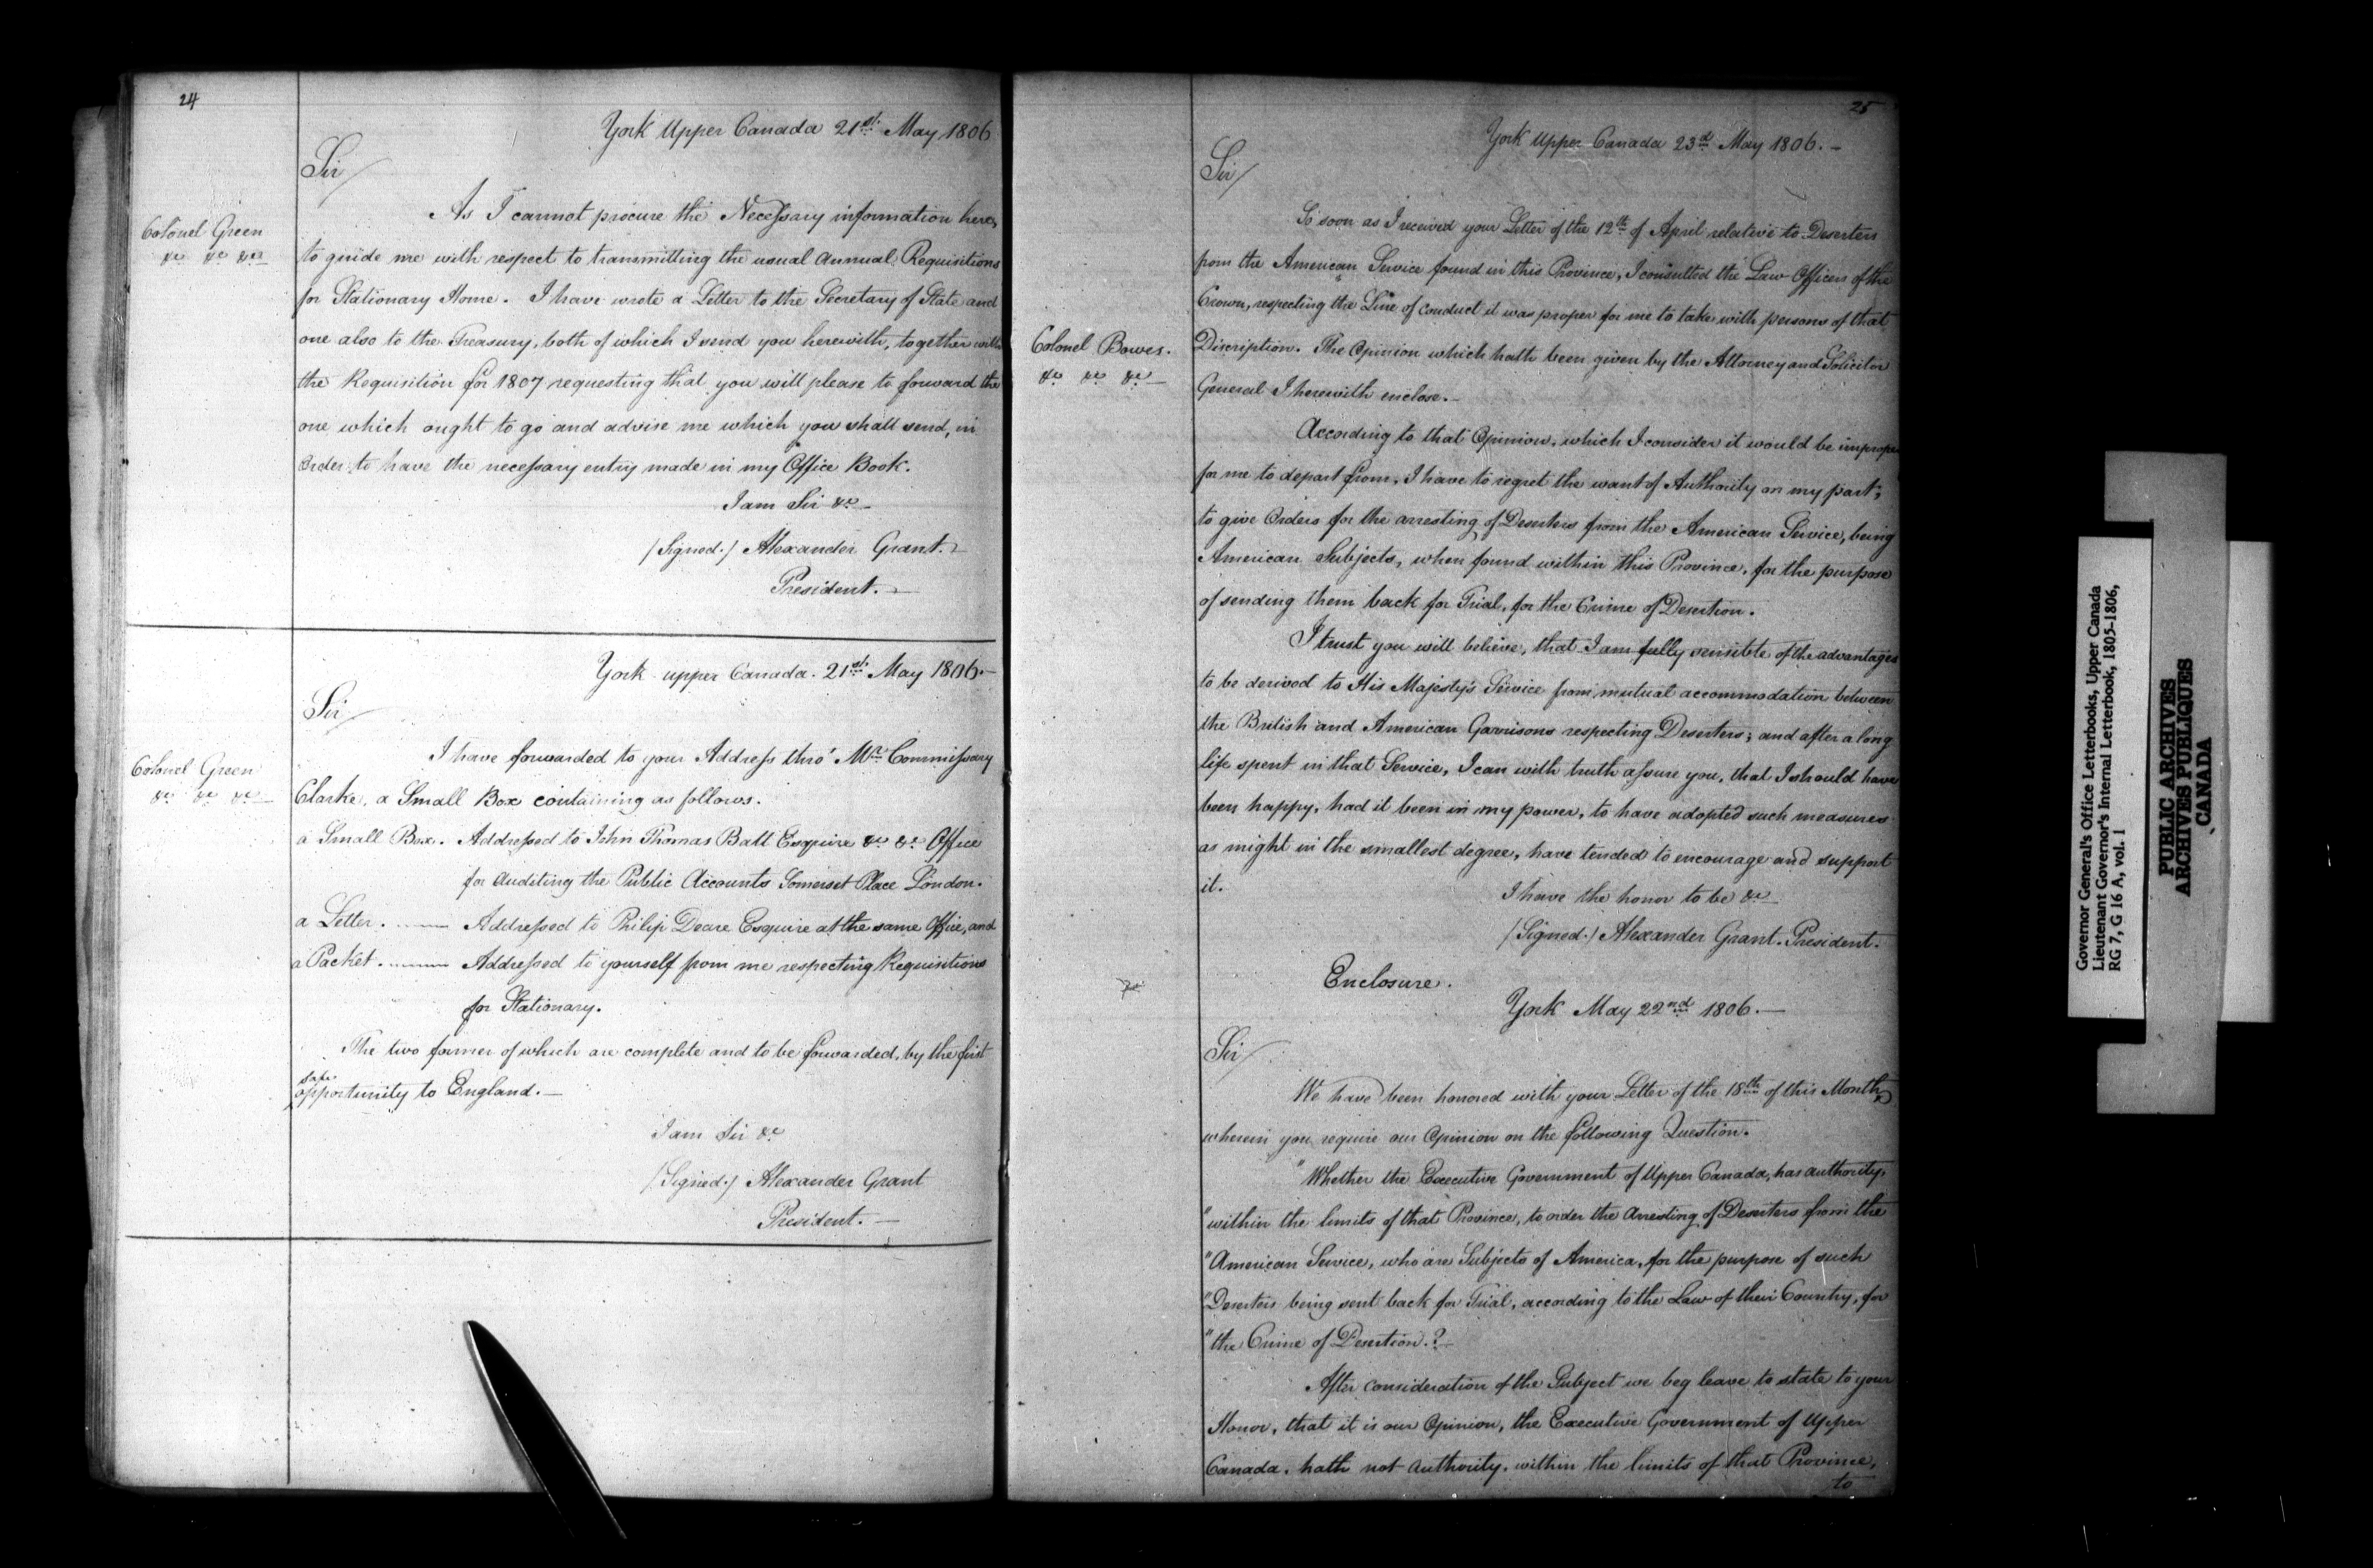 24
York Upper Canada 21st. May 1806
Sir/
Colonel Green
&c &c &c
As I cannot procure the Necessary information here,
to guide me with respect to transmitting the usual Annual Requisitions
for Stationary Home. I have wrote a Letter to the Secretary of State and
one also to the Treasury, both of which I send you herewith, together with
the Requisition for 1807 requesting that you will please to forward the
one which ought to go and advise me which you shall send, in
order to have the necessary entry made in my Office Book.
I am Sir &c
/Signed./ Alexander Grant.
President.
York upper Canada. 21st. May 1806.
Sir/
Colonel Green
&c &c &c
I have forwarded to your Address thro' Mr. Commissary
Clarke, a Small Box containing as follows.
a Small Box. Addressed to John Thomas Batt Esquire &c &c Office
for Auditing the Public Accounts Somerset Place London.
a Letter. Addressed to Philip Deare Esquire at the same Office, and
a Packet. Addressed to yourself from me respecting Requisitions
for Stationary.
The two former of which are complete and to be forwarded, by the first
safe
opportunity to England.
I am Sir &c
/Signed./ Alexander Grant
President.
25
York Upper Canada 23d May 1806.
Sir/
Colonel Bowes.
&c &c &c
So soon as I received your Letter of the 12th of April relative to Deserters
from the American Service found in this Province, I consulted the Law Officers of the
Crown, respecting the Line of Conduct it was proper for me to take with persons of that
Discription. The Opinion which hath been given by the Attorney and Solicitor
General I herewith enclose.
According to that Opinion, which I consider it would be improper
for me to depart from, I have to regret the want of Authority on my part,
to give Orders for the arresting of Deserters from the American Service, being
American Subjects, when found within this Province, for the purpose
of sending them back for Trial, for the Crime of Desertion.
I trust you will believe, that I am fully sensible of the advantages
to be derived to His Majesty's Service from mutual accommodation between
the British and American Garrisons respecting Deserters; and after a long
life spent in that Service, I can with truth assure you, that I should have
been happy, had it been in my power, to have adopted such measures
as might in the smallest degree, have tended to encourage and support
it.
I have the honor to be &c
/Signed./ Alexander Grant. President.
Enclosure.
York May 22nd 1806.
Sir/
We have been honored with your Letter of the 18th of this Month
wherein you require our Opinion on the following Question.
"Whether the Executive Government of Upper Canada, has authority,
"within the limits of that Province, to order the Arresting of Deserters from the
"American Service, who are Subjects of America, for the purpose of such
"Deserters being sent back for Trial, according to the Law of their Country, for
"the Crime of Desertion.?
After consideration of the Subject we beg leave to state to your
Honor, that it is our Opinion, the Executive Government of Upper
Canada, hath not authority, within the limits of that Province,
to
Governor General's Office Letterbooks, Upper Canada
Lieutenant Governor's Internal Letterbook, 1805-1806,
RG 7, G 16 A, vol. 1
PUBLIC ARCHIVES
ARCHIVES PUBLIQUES
CANADA